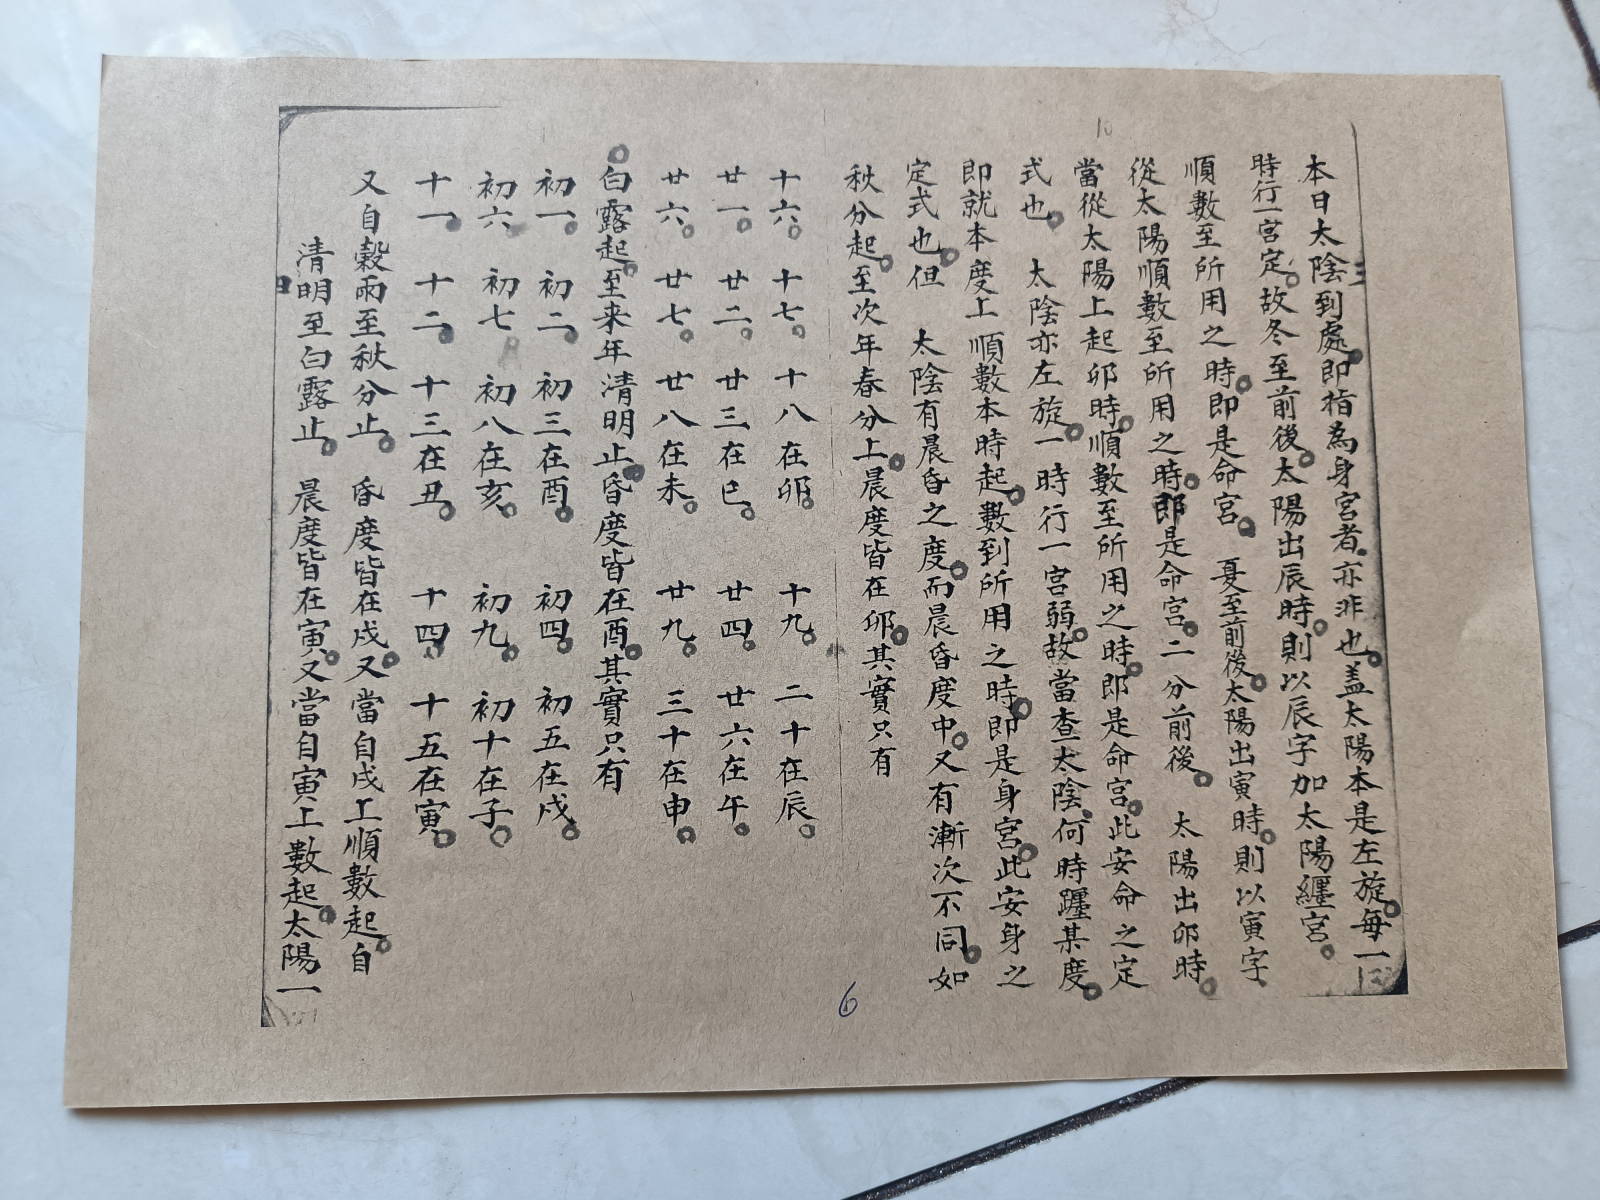 本日太陰到處即指為身宮者亦非也蓋太陽本是左旋每一
時行一宮定故冬至前後太陽出辰時則以辰字加太陽纏宮
順數至所用之時即是命宮 夏至前後太陽出寅時則以寅字
從太陽順數至所用之時即是命宮二分前後 太陽出卯時
當從太陽上起卯時順數至所用之時即是命宮此安命之定
式也 太陰亦左旋一時行一宮弱故當查太陰何時躔某度
即就本度上順數本時起數到所用之時即是身宮此安身之
定式也但 太陰有晨昏之度而晨昏度中又有漸次不同如
秋分起至次年春分上晨度皆在卯其實只有
十六 十七 十八在卯 十九 二十在辰
廿一 廿二 廿三在巳 廿四 廿六在午
廿六 廿七 廿八在未 廿九 三十在申
白露起至来年清明止昏度皆在酉其實只有
初一 初二 初三在酉 初四 初五在戍
初六 初七 初八在亥 初九 初十在子
十一 十二 十三在丑 十四 十五在寅
又自穀雨至秋分止 昏度皆在戍又當自戍上順數起自
清明至白露止 晨度皆在寅又當自寅上數起太陽一
10
6